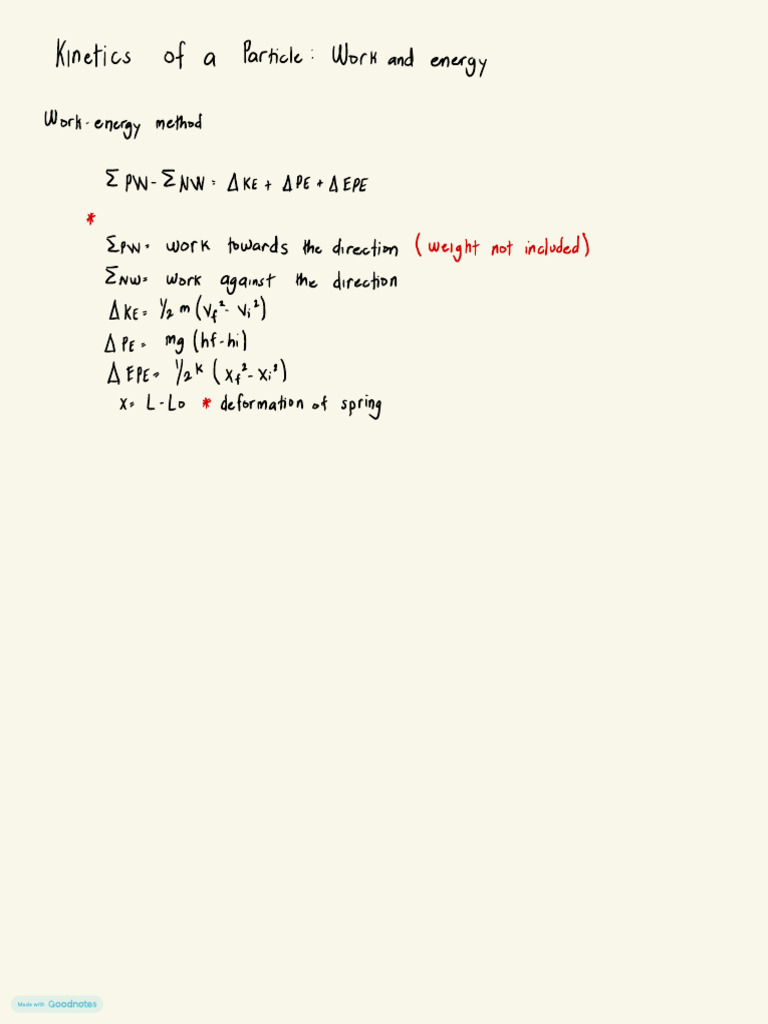 Kinetics of a Particle: Work and energy
Work-energy method
Σ PW - Σ NW = Δ KE + Δ PE + Δ EPE
*
ΣPW = work towards the direction (weight not included)
ΣNW = work against the direction
Δ KE = 1/2 m (Vf² - Vi²)
Δ PE = mg (hf-hi)
Δ EPE = 1/2 k (xf² - xi²)
x = L - Lo * deformation of spring
Made with Goodnotes